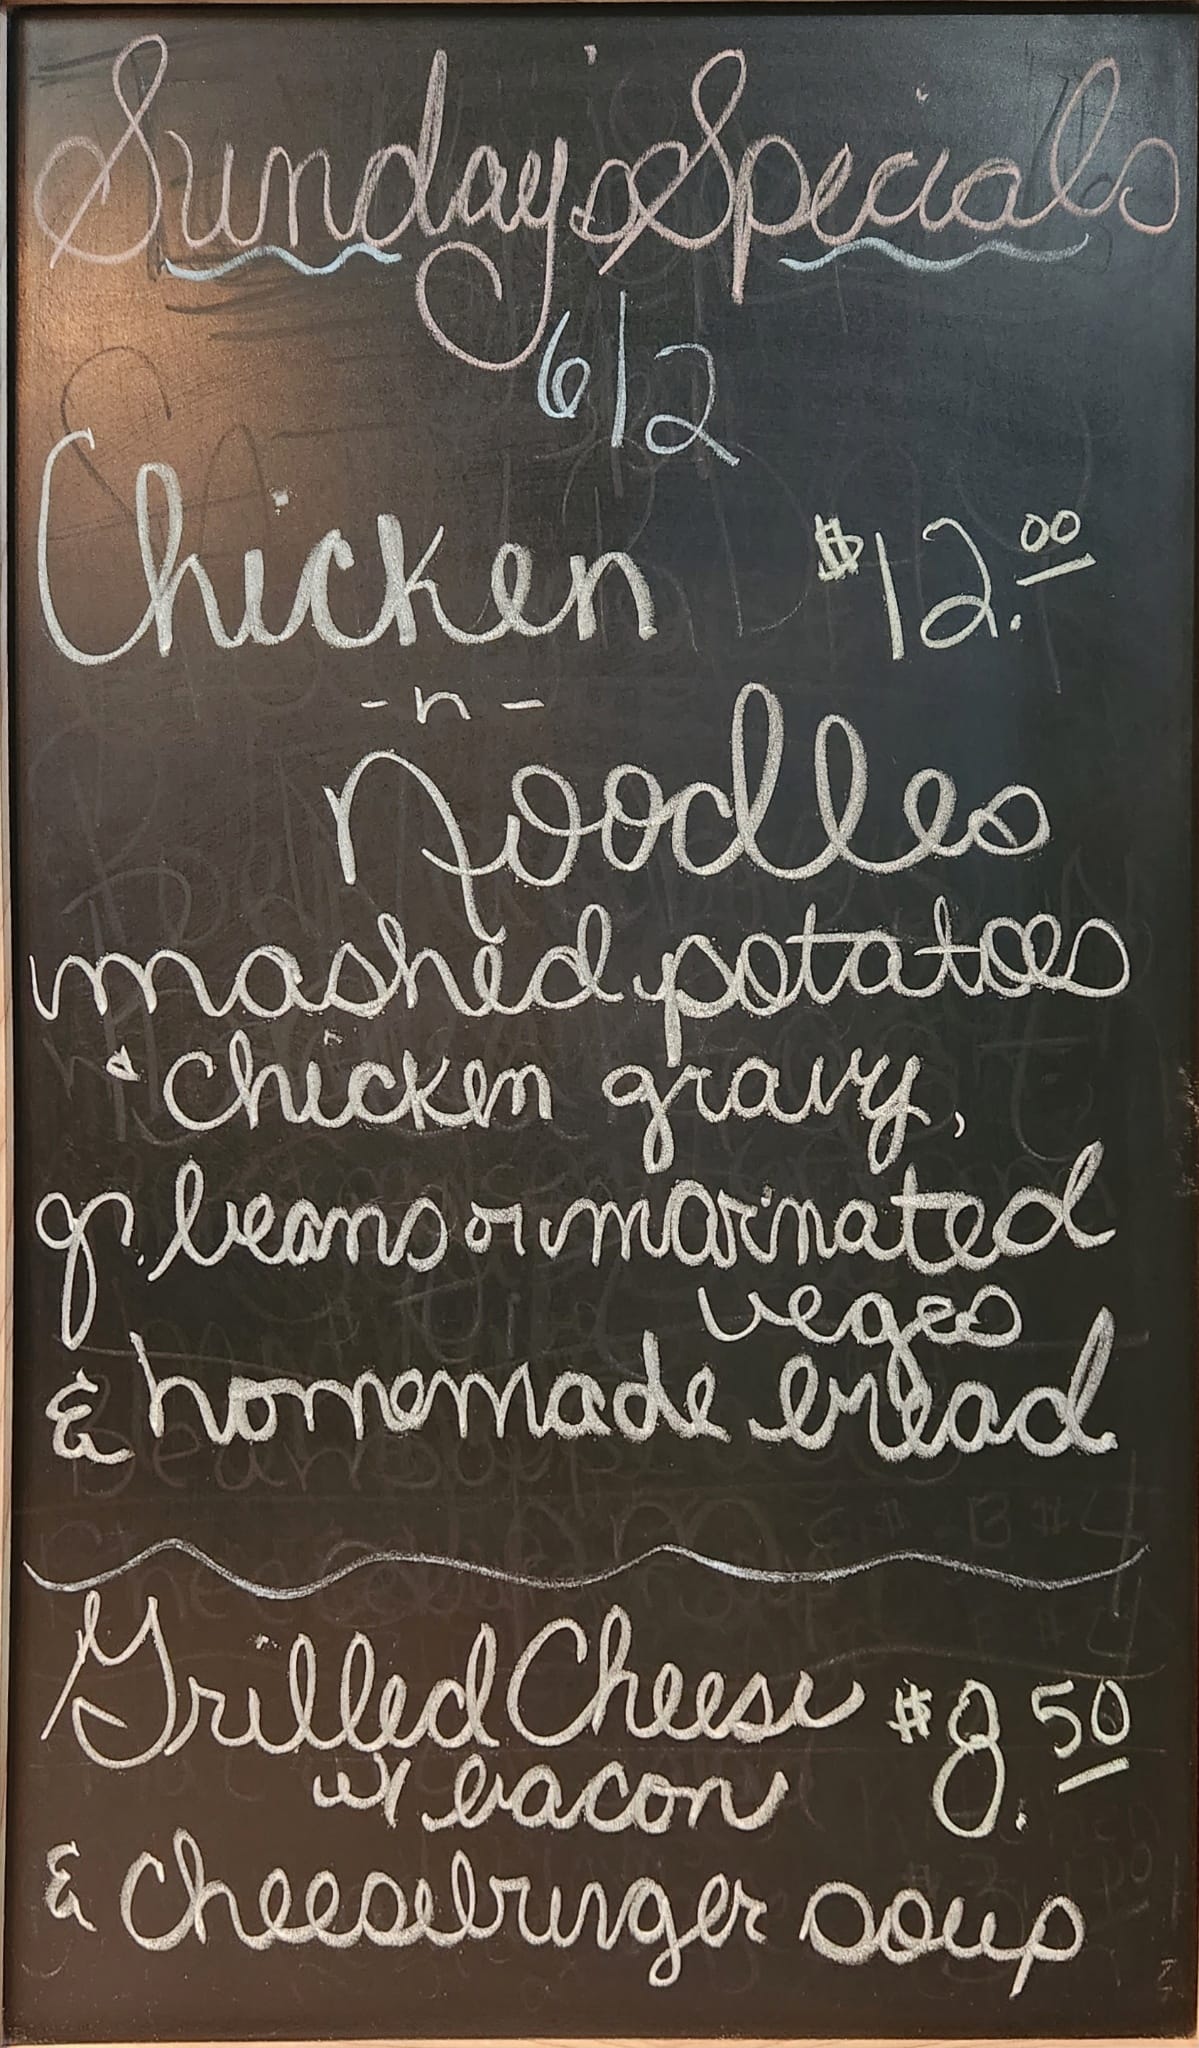 Sunday's Specials
6/2
Chicken $12.00
-n-
Noodles
mashed potatoes
& chicken gravy,
gr. beans or marinated
veges
& homemade bread
Grilled Cheese $8.50
w/ bacon
& Cheeseburger soup